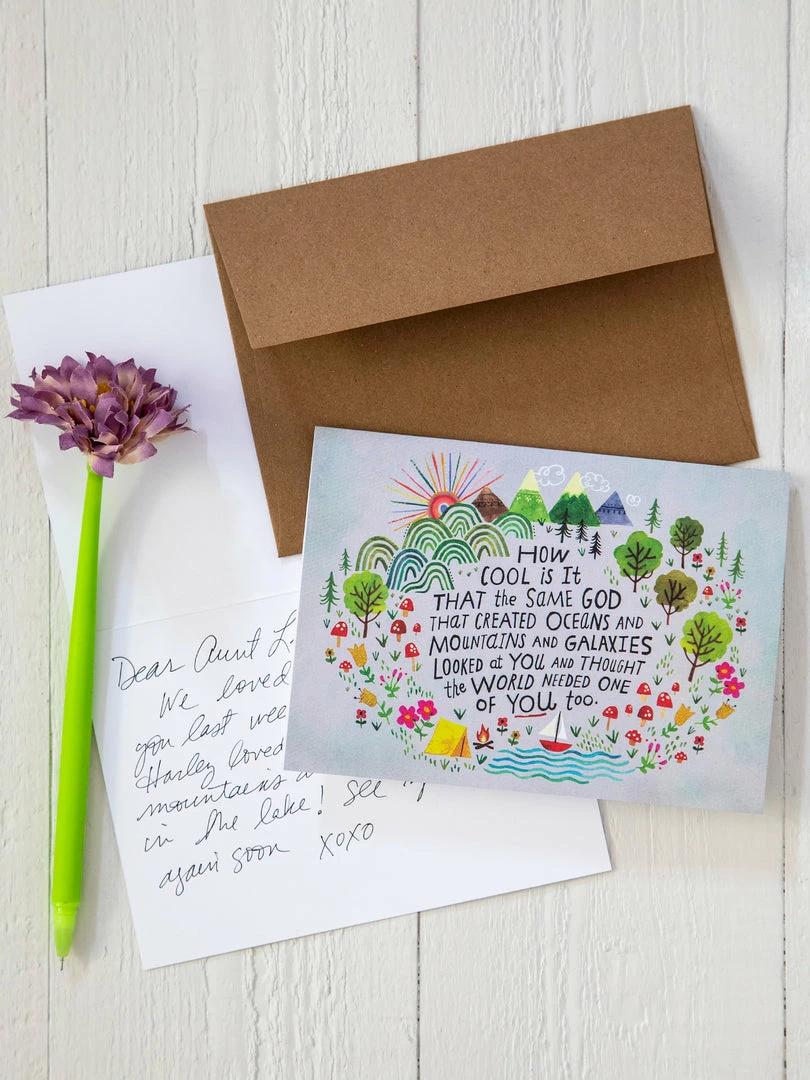 HOW
COOL is It
THAT the SAME GOD
THAT CREATED OCEANS AND
MOUNTAINS AND GALAXIES
LOOKED at YOU AND THOUGHT
the WORLD NEEDED ONE
OF YOU too.
Dear Aunt L
We loved
you last wee
Harley loved
mountains a
in the lake! See
again soon XOXO